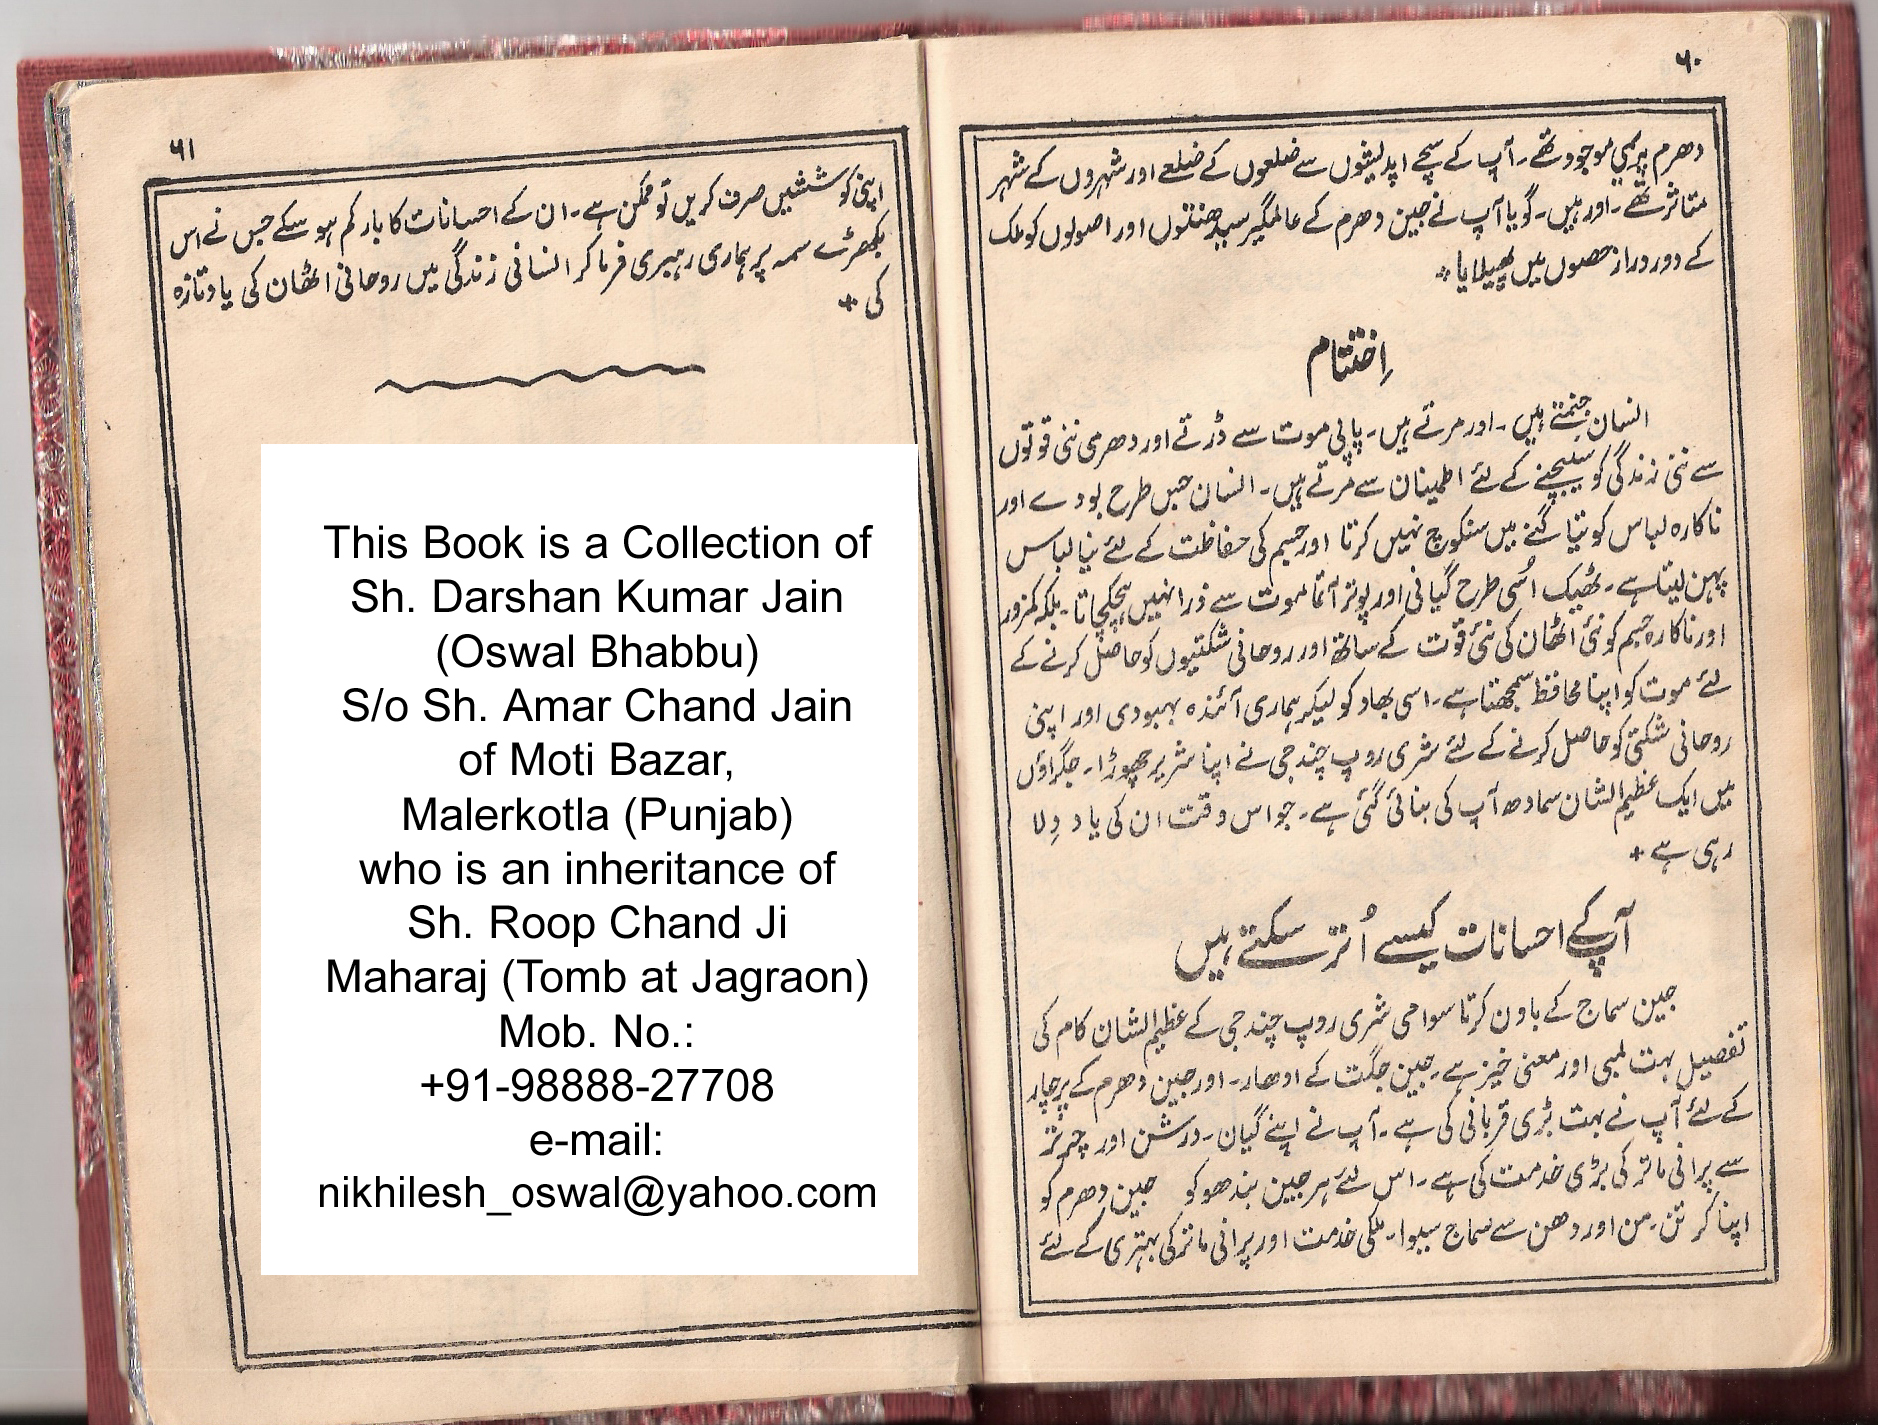 ۶۰
دھرم پریمی موجود تھے۔ آپ کے سچے اپدیشوں سے ضلعوں کے ضلعے اور شہروں کے شہر
متاثر تھے۔ اور ہیں۔ گویا آپ نے جین دھرم کے عالمگیر سیدھنتوں اور اصولوں کو ملک
کے دور دراز حصوں میں پھیلایا۔
اِختتام
انسان جنمتے ہیں۔ اور مرتے ہیں۔ پاپی موت سے ڈرتے اور دھرمی نئی قوتوں
سے نئی زندگی کو سینچنے کے لئے اطمینان سے مرتے ہیں۔ انسان جس طرح بودے اور
ناکارہ لباس کو تیاگنے میں سنکوچ نہیں کرتا اور جسم کی حفاظت کے لئے نیا لباس
پہن لیتا ہے۔ ٹھیک اُسی طرح گیانی اور پوتر آتما موت سے ذرا نہیں ہچکچاتا۔ بلکہ کمزور
اور ناکارہ جسم کو نئی اٹھان کی نئی قوت کے ساتھ اور روحانی شکتیوں کو حاصل کرنے کے
لئے موت کو اپنا محافظ سمجھتا ہے۔ اسی بھاو کو لیکر ہماری آئندہ بہبودی اور اپنی
روحانی شکتی کو حاصل کرنے کے لئے شری روپ چند جی نے اپنا شریر چھوڑا۔ جگراؤں
میں ایک عظیم الشان سمادھ آپ کی بنائی گئی ہے۔ جو اس وقت ان کی یاد دِلا
رہی ہے +
آپ کے احسانات کیسے اُتر سکتے ہیں
جین سماج کے باون کرتا سوامی شری روپ چند جی کے عظیم الشان کام کی
تفصیل بہت لمبی اور معنی خیز ہے۔ جین جگت کے اودھار۔ اور جین دھرم کے پرچار
کے لئے آپ نے بہت بڑی قربانی کی ہے۔ آپ نے اپنے گیان۔ درشن اور چرتر
سے پرانی ماتر کی بڑی خدمت کی ہے۔ اس لئے ہر جین بندھو کو جین دھرم کو
اپنا کر تن۔ من اور دھن سے سماج سیوا۔ ملکی خدمت اور پرانی ماتر کی بہتری کے لئے
۶۱
اپنی کوششیں صرف کریں تو ممکن ہے۔ ان کے احسانات کا بار کم ہو سکے جس نے اس
بکھڑے سمہ پر ہماری رہبری فرما کر انسانی زندگی میں روحانی اٹھان کی یاد تازہ
کی +
This Book is a Collection of
Sh. Darshan Kumar Jain
(Oswal Bhabbu)
S/o Sh. Amar Chand Jain
of Moti Bazar,
Malerkotla (Punjab)
who is an inheritance of
Sh. Roop Chand Ji
Maharaj (Tomb at Jagraon)
Mob. No.:
+91-98888-27708
e-mail:
nikhilesh_oswal@yahoo.com